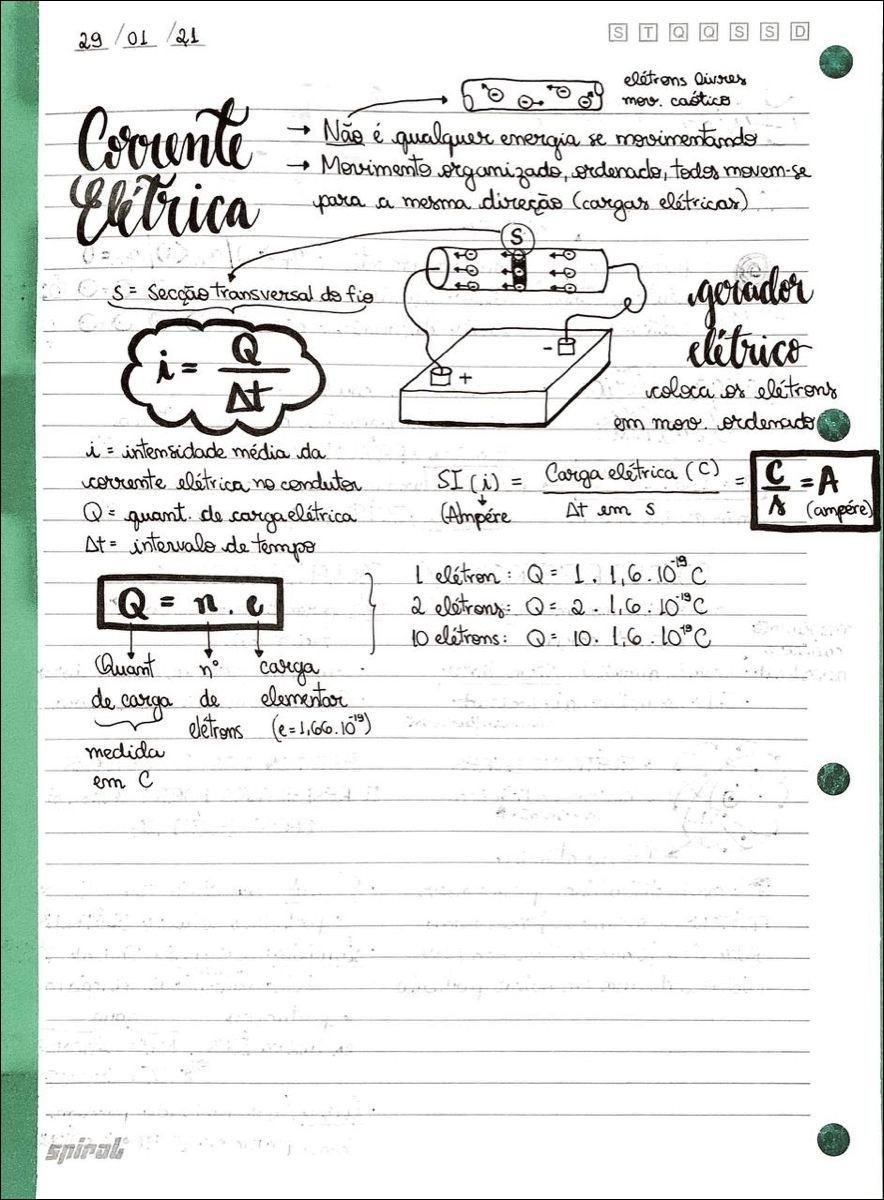 29 / 01 / 21
S T Q Q S S D
elétrons livres
mov. caótico
Corrente
Elétrica
→ Não é qualquer energia se movimentando
→ Movimento organizado, ordenado, todos movem-se
para a mesma direção (cargas elétricas)
S
S = Secção transversal do fio
gerador
elétrico
coloca os elétrons
em mov. ordenado
+ -
i = Q / Δt
i = intensidade média da
corrente elétrica no condutor
Q = quant. de carga elétrica
Δt = intervalo de tempo
SI (i) = Carga elétrica (C) / Δt em s = C / s = A
(Ampére
(ampére)
Q = n . e
Quant
de carga
medida
em C
nº
de
elétrons
carga
elementar
(e = 1,66 . 10⁻¹⁹)
1 elétron : Q = 1 . 1,6 . 10⁻¹⁹ C
2 elétrons: Q = 2 . 1,6 . 10⁻¹⁹ C
10 elétrons: Q = 10 . 1,6 . 10⁻¹⁹ C
spiral